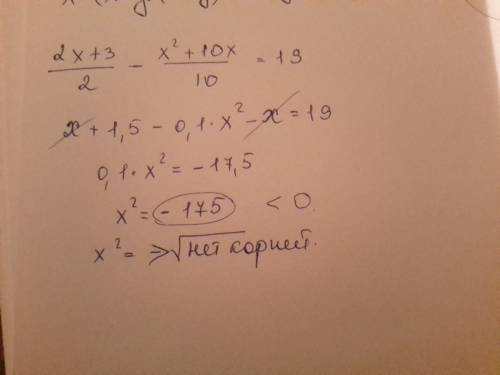 (2x+3)/2 - (x²+10x)/10 = 19
x + 1,5 - 0,1·x² - x = 19
0,1·x² = -17,5
x² = -175 < 0.
x² = => √нет корней.